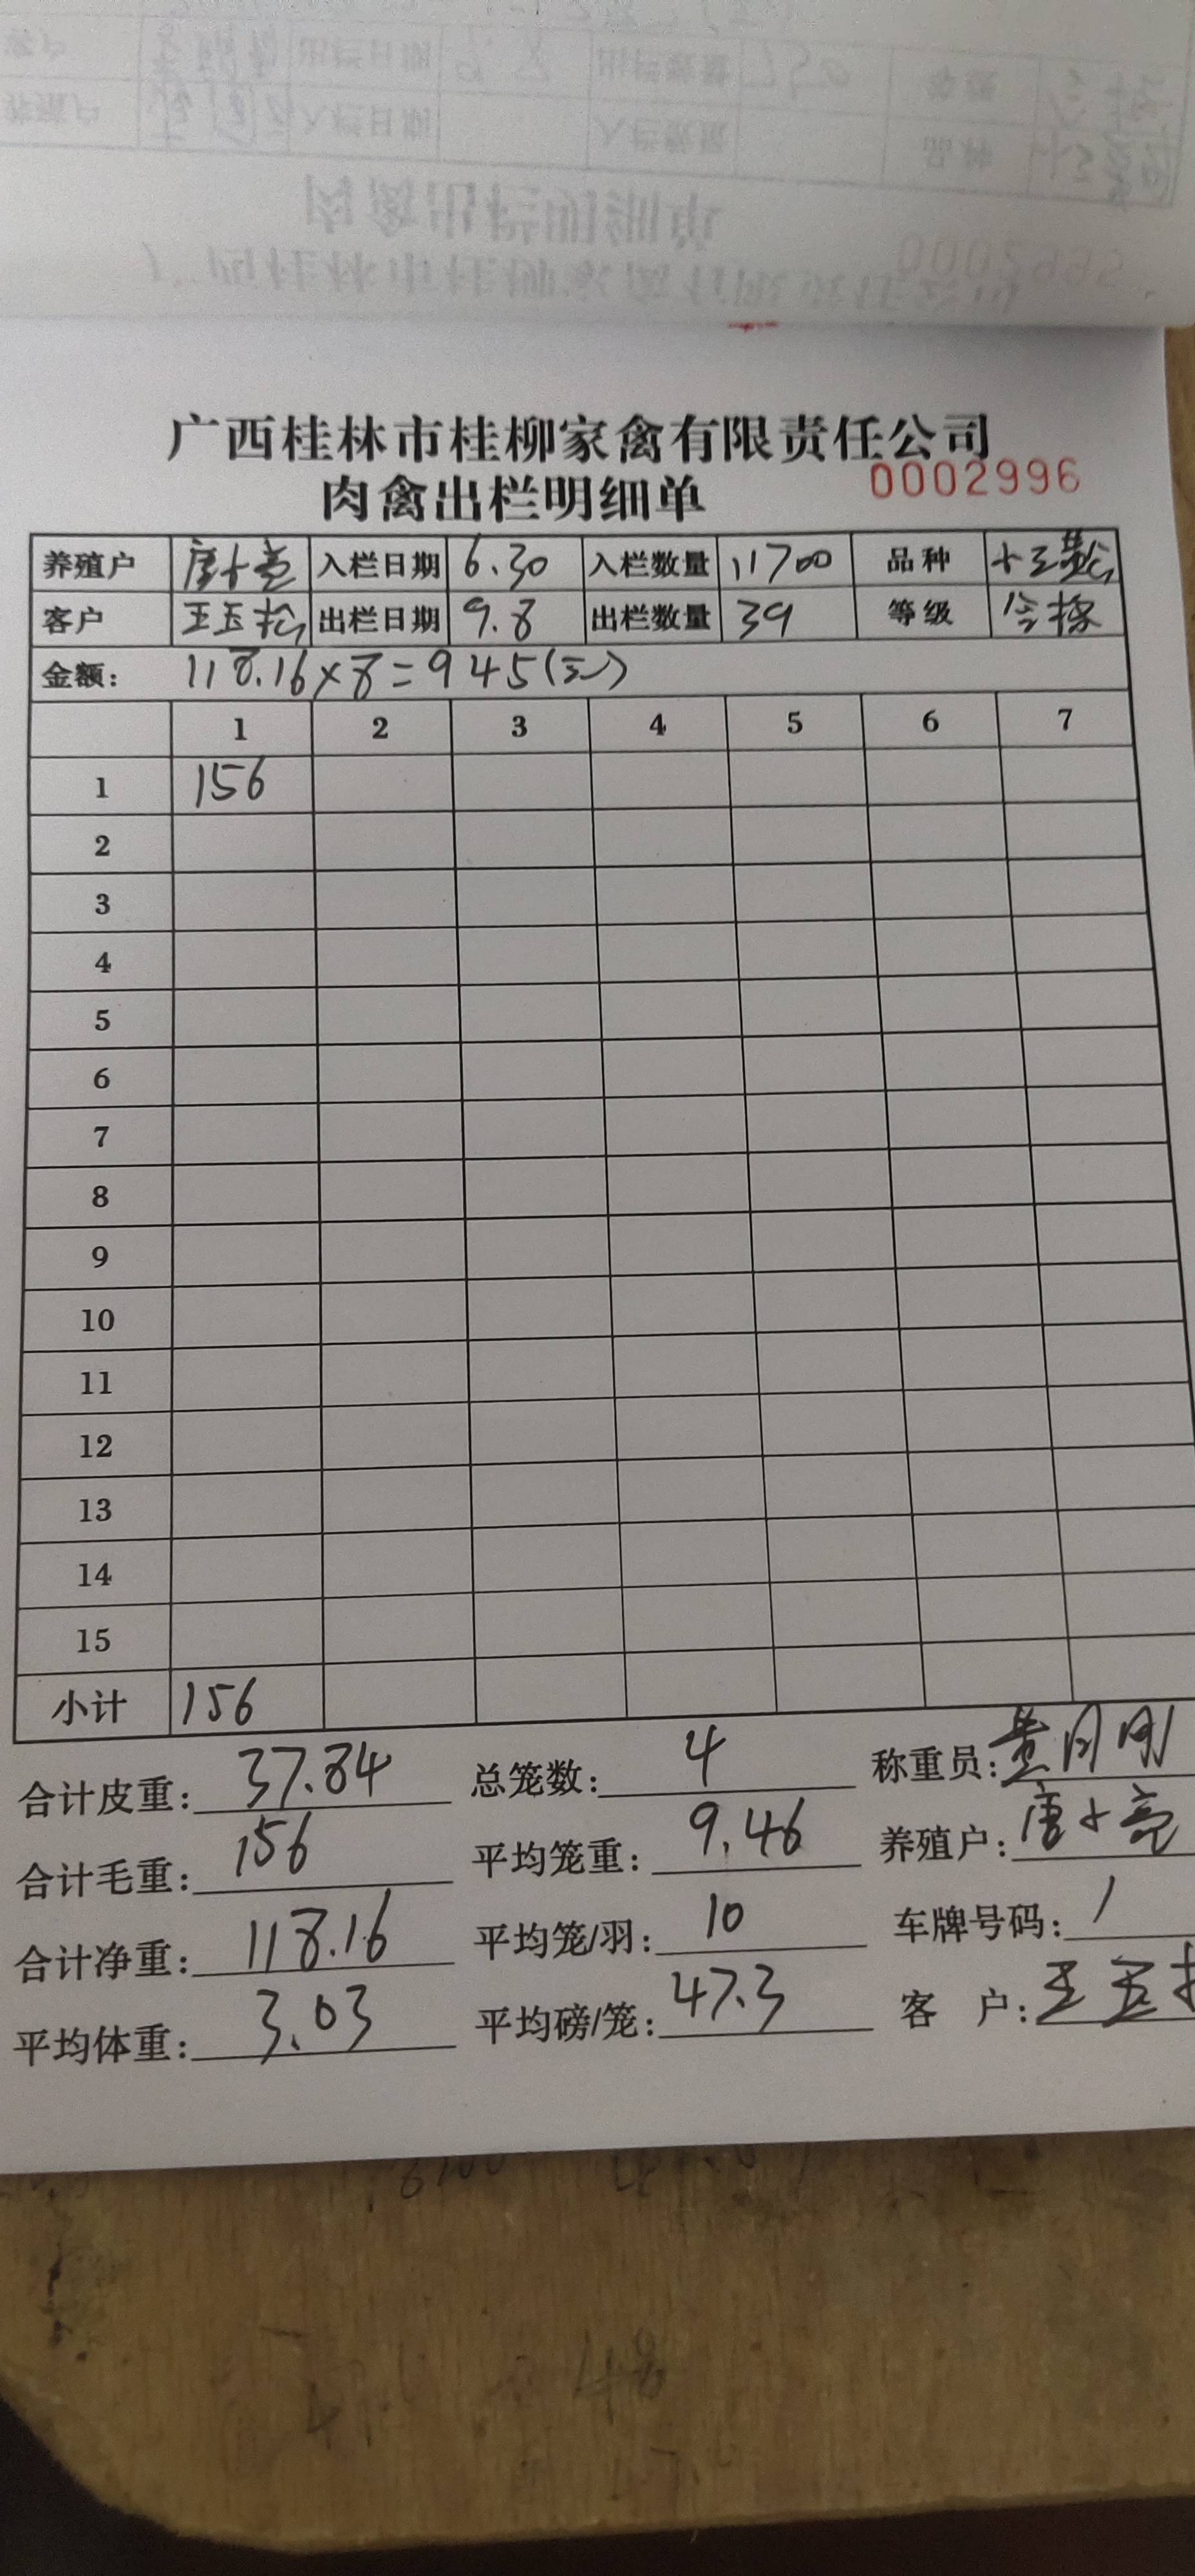 广西桂林市桂柳家禽有限责任公司
肉禽出栏明细单 0002996
养殖户 唐小亮 入栏日期 6.30 入栏数量 11700 品种 土三黄
客户 王玉松 出栏日期 9.8 出栏数量 39 等级 合格
金额: 118.16×8=945(元)
1 2 3 4 5 6 7
1 156
2
3
4
5
6
7
8
9
10
11
12
13
14
15
小计 156
合计皮重: 37.84 总笼数: 4 称重员: 黄月刚
合计毛重: 156 平均笼重: 9.46 养殖户: 唐小亮
合计净重: 118.16 平均笼/羽: 10 车牌号码: /
平均体重: 3.03 平均磅/笼: 47.3 客 户: 王玉